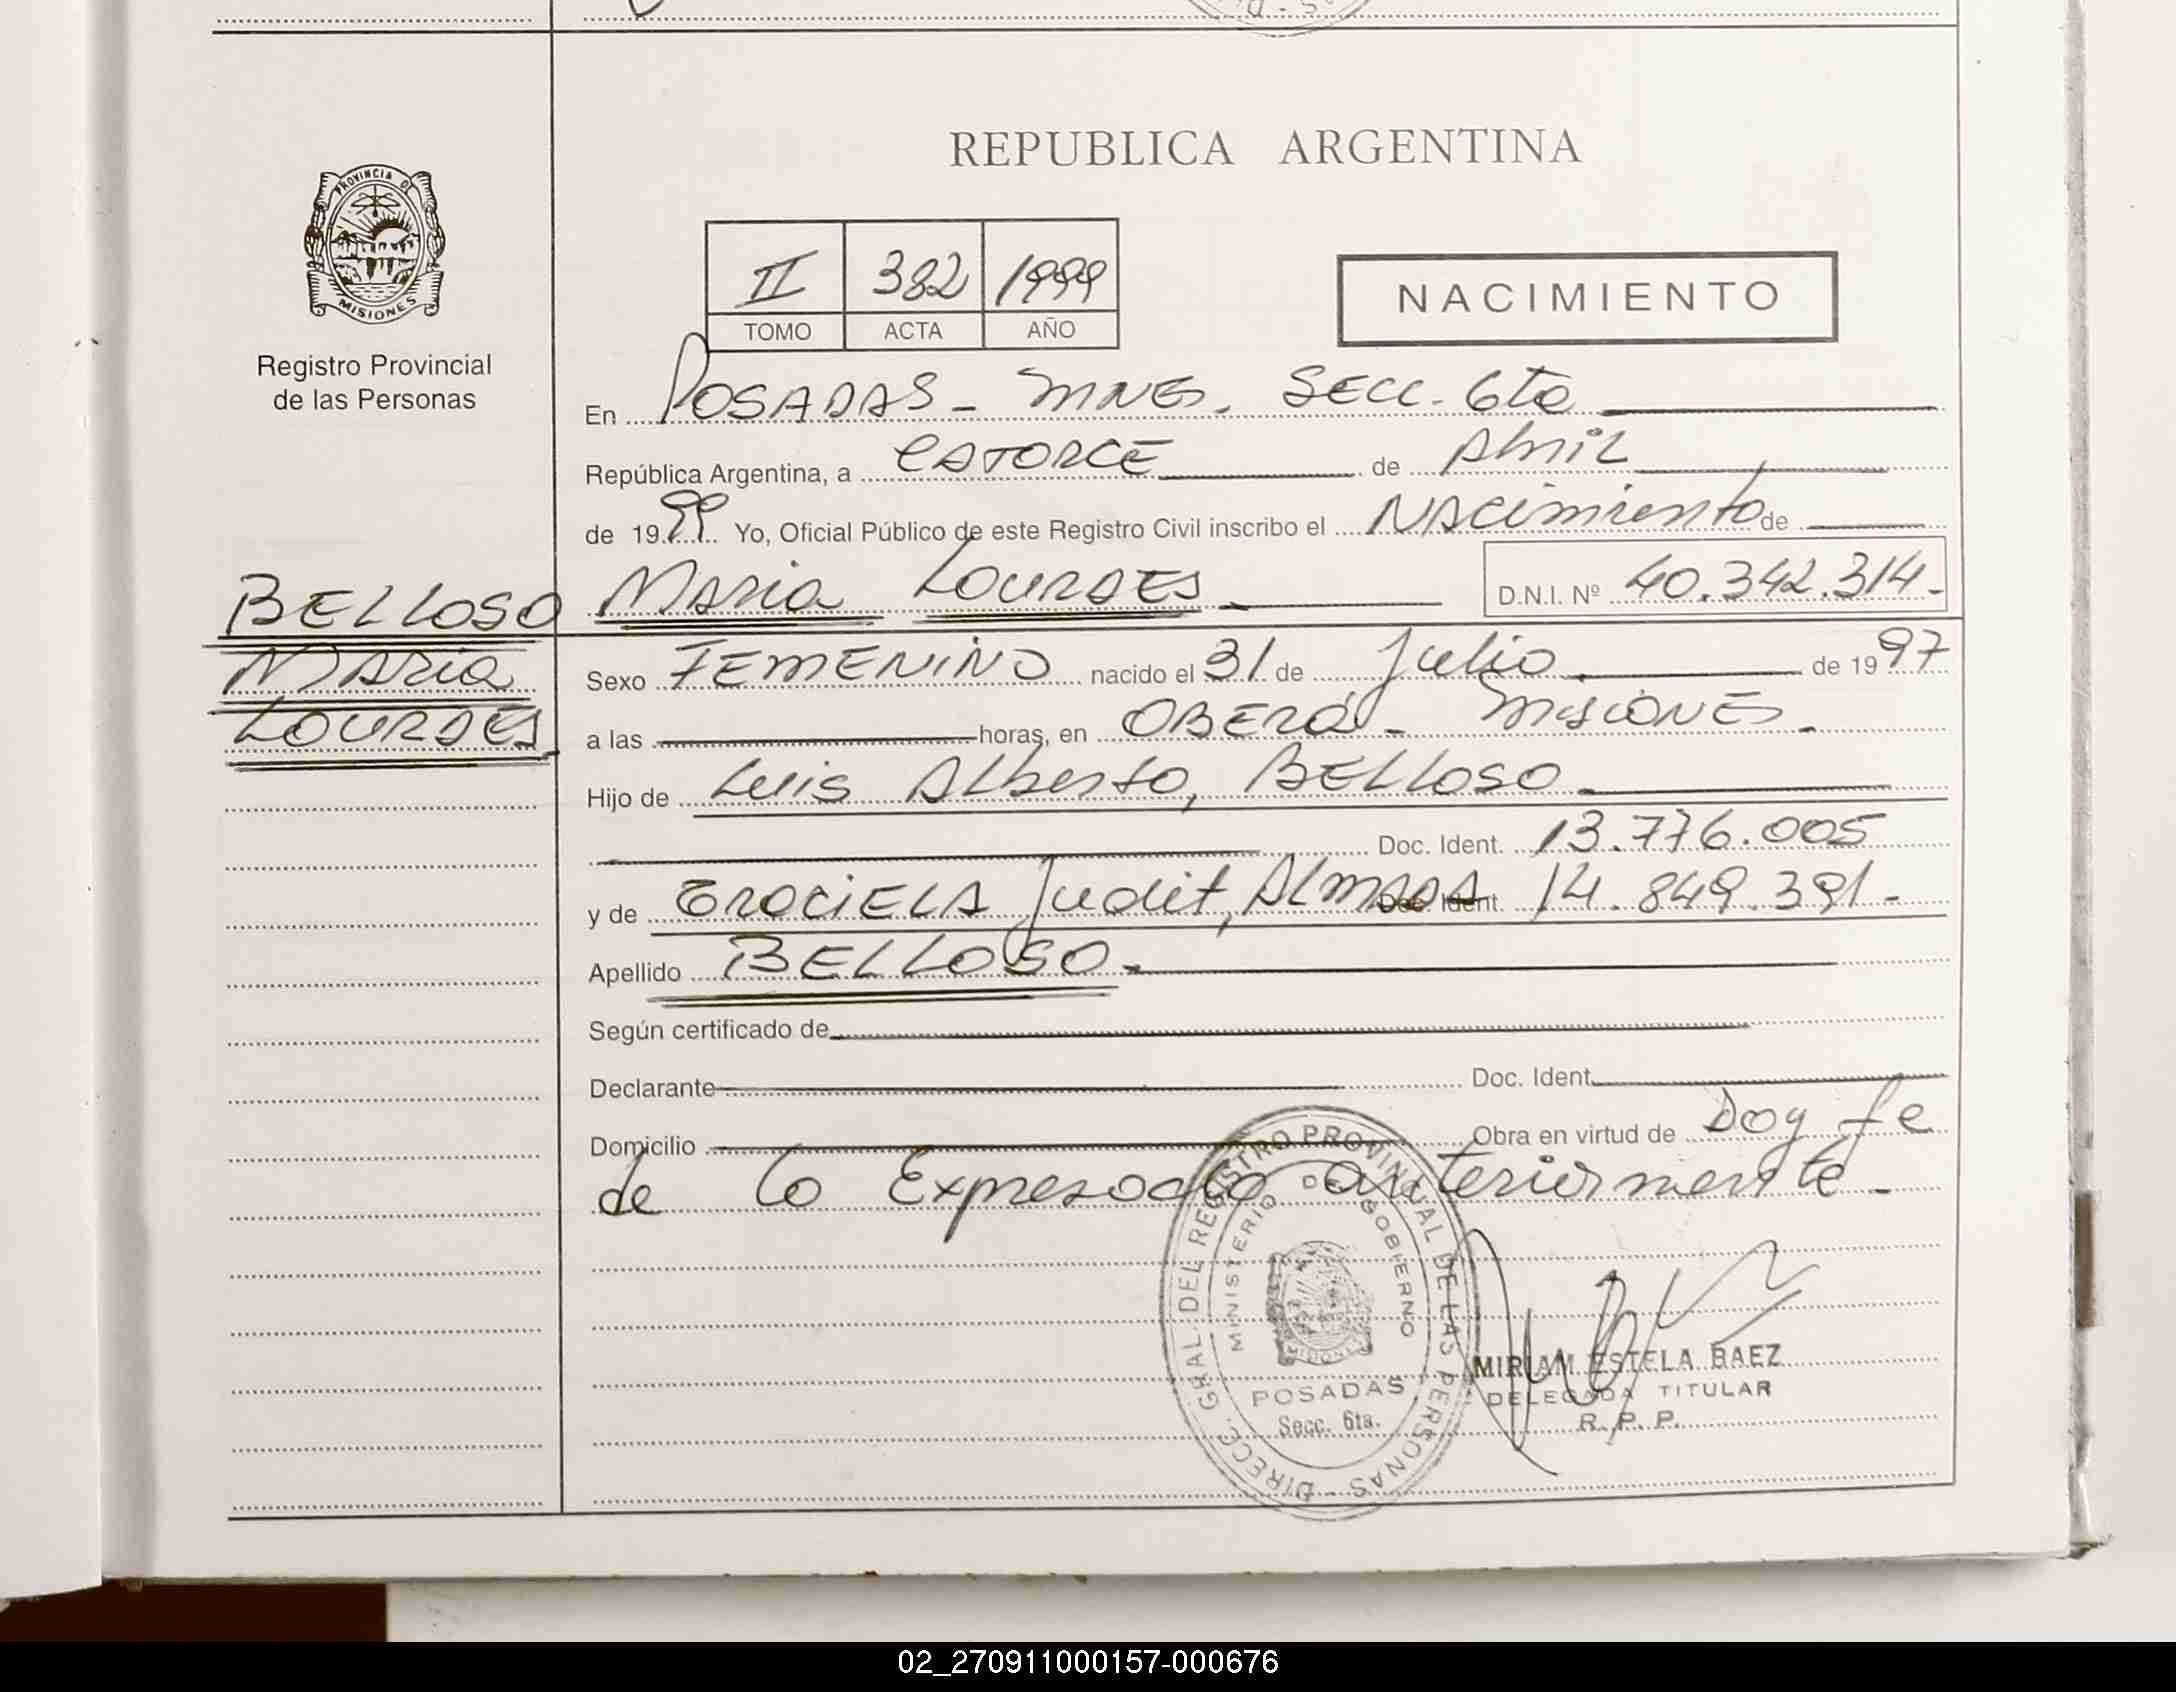 REPUBLICA ARGENTINA
PROVINCIA DE
MISIONES
Registro Provincial
de las Personas
II 382 1999
TOMO ACTA AÑO
NACIMIENTO
En POSADAS - MNES. SECC. 6ta
República Argentina, a CATORCE de Abril
de 1999 Yo, Oficial Público de este Registro Civil inscribo el NACimiento de
MARIA LOURDES D.N.I. Nº 40.342.314.-
BELLOSO
MARIA
LOURDES
Sexo FEMENINO nacido el 31 de Julio de 1997
a las horas, en OBERÁ - MISIONES -
Hijo de Luis Alberto, BELLOSO
Doc. Ident. 13.776.005
y de GRACIELA Judit, ALMADA Doc. Ident. 14.849.391.-
Apellido BELLOSO.-
Según certificado de
Declarante Doc. Ident.
Domicilio Obra en virtud de Doy fe
de lo Expresado anteriormente.-
DIRECC. GRAL. DEL REGISTRO PROVINCIAL DE LAS PERSONAS -
MINISTERIO DE GOBIERNO
MISIONES
POSADAS
Secc. 6ta.
MIRIAM ESTELA BAEZ
DELEGADA TITULAR
R. P. P.
02_270911000157-000676